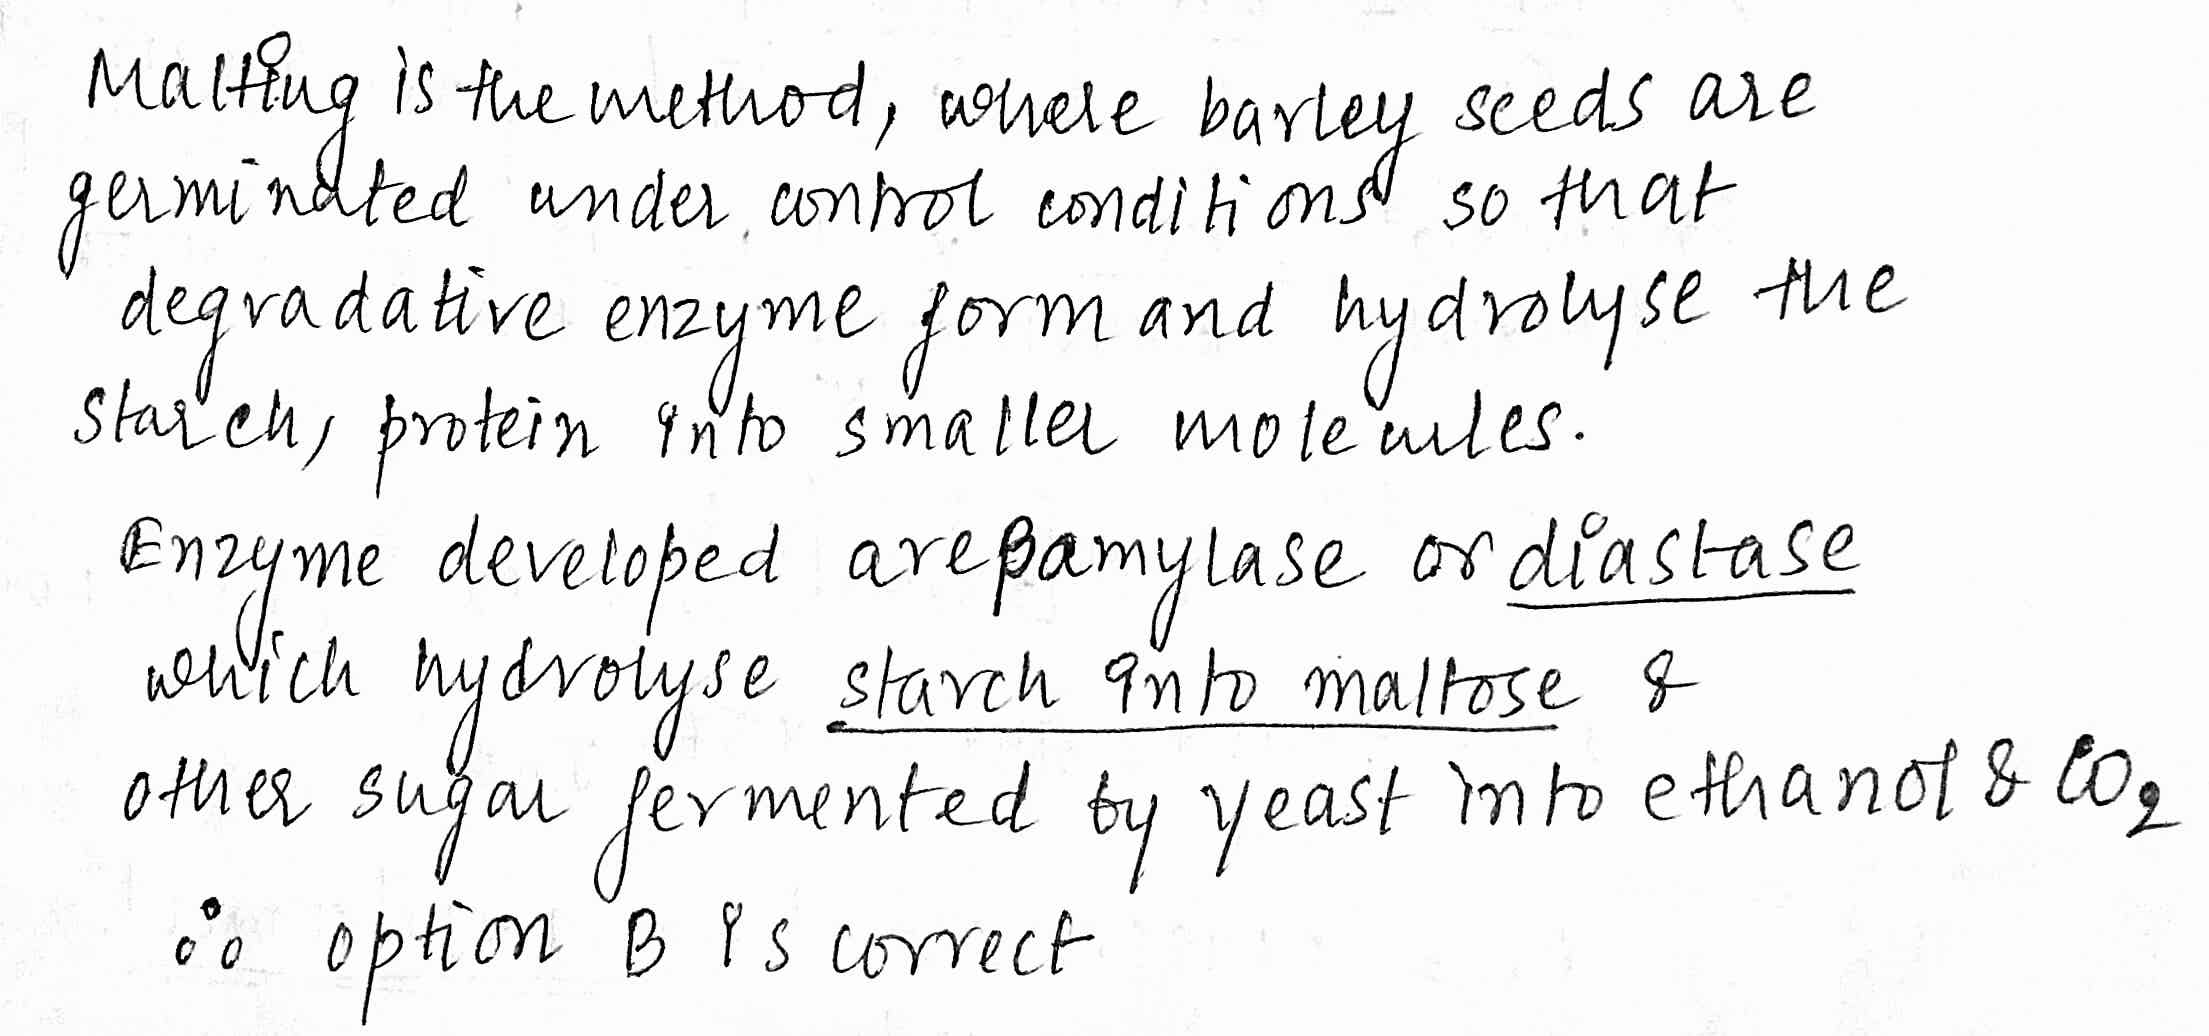 Malting is the method, where barley seeds are
germinated under control conditions so that
degradative enzyme form and hydrolyse the
starch, protein into smaller molecules.
Enzyme developed are βamylase or diastase
which hydrolyse starch into maltose &
other sugar fermented by yeast into ethanol & CO₂
∴ option B is correct